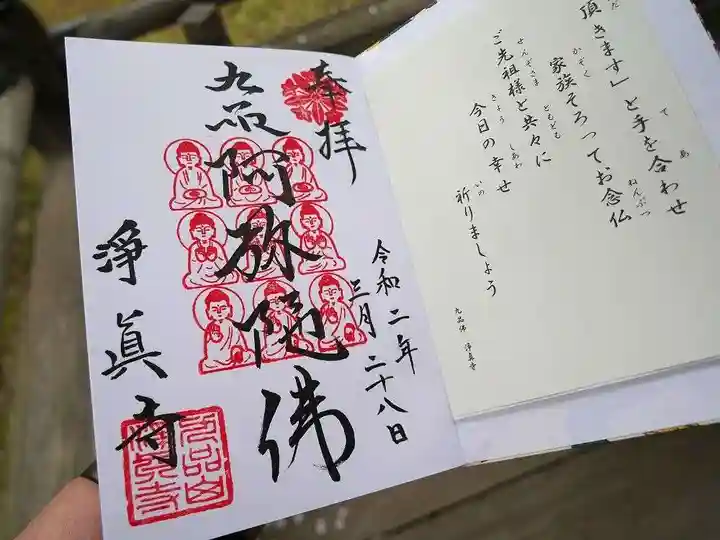 頂きます」と手を合わせ
家族そろってお念仏
ご先祖様と共々に
今日の幸せ
祈りましょう
九品佛 浄真寺
奉拝
令和二年
三月二十八日
九品阿弥陀佛
淨眞寺